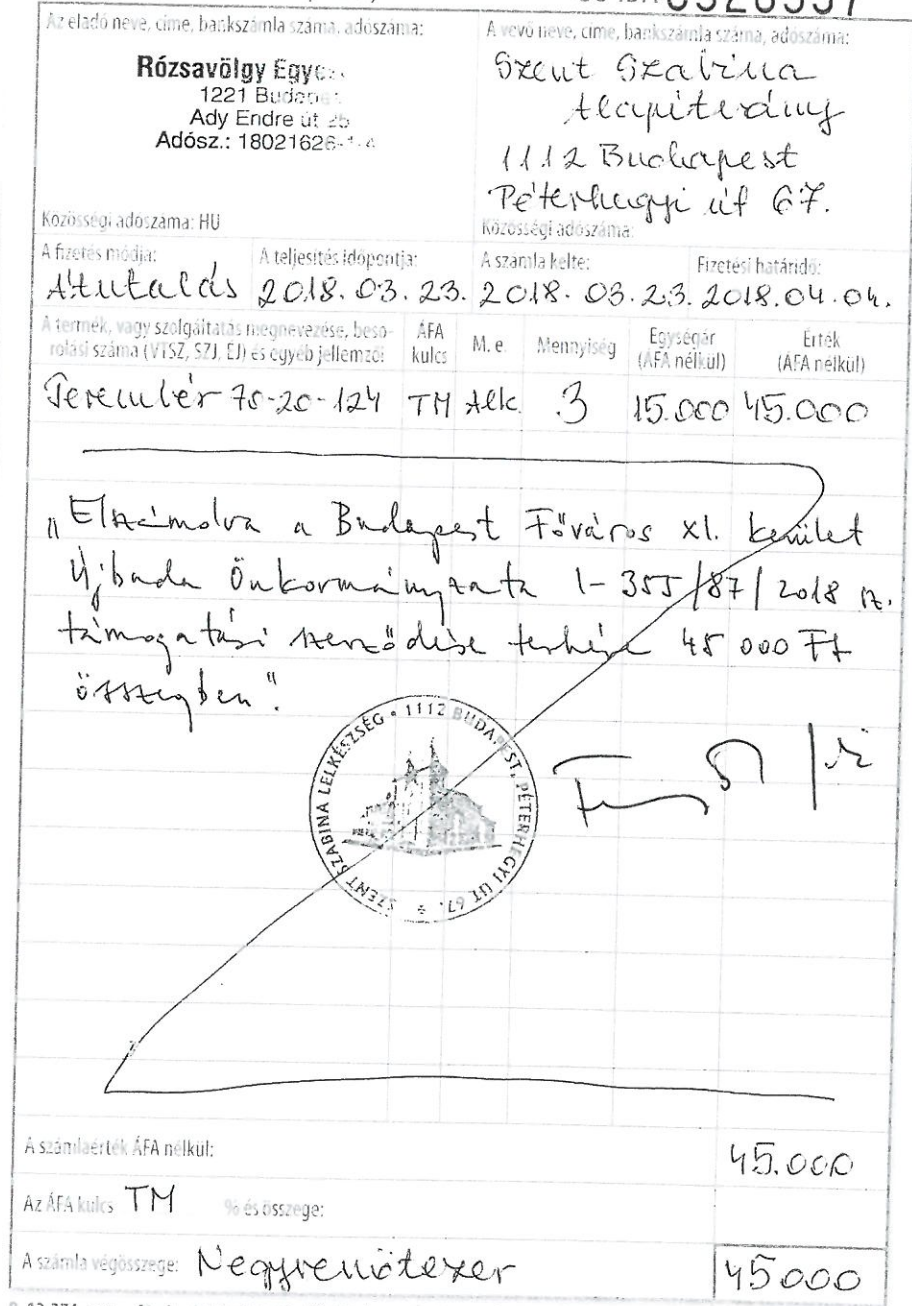 Az eladó neve, címe, bankszámla száma, adószáma:
Rózsavölgy
1221
Ady Endre út 25
Adósz.: 18021626-1-
Közösségi adószáma: HU
A vevő neve, címe, bankszámla száma, adószáma:
Szent Szabina
Alapítvány
1112 Budapest
Péterhegyi út 67.
Közösségi adószáma:
A fizetés módja: A teljesítés időpontja: A számla kelte: Fizetési határidő:
Átutalás 2018.03.23. 2018.03.23. 2018.04.04.
A termék, vagy szolgáltatás megnevezése, beso-
rolási száma (VTSZ, SZJ, ÉJ) és egyéb jellemzői:
ÁFA kulcs M. e. Mennyiség Egységár (ÁFA nélkül) Érték (ÁFA nélkül)
Terembér TM Alk. 3 15.000 45.000
„Elszámolva a Budapest Főváros XI. kerület
Újbuda Önkormányzata I-355/87/2018 sz.
támogatási szerződése terhére 45 000 Ft
összegben".
SZENT SZABINA LELKÉSZSÉG • 1112 BUDAPEST, PÉTERHEGYI ÚT 67.
A számlaérték ÁFA nélkül: 45.000
Az ÁFA kulcs TM % és összege:
A számla végösszege: Negyvenötezer 45000